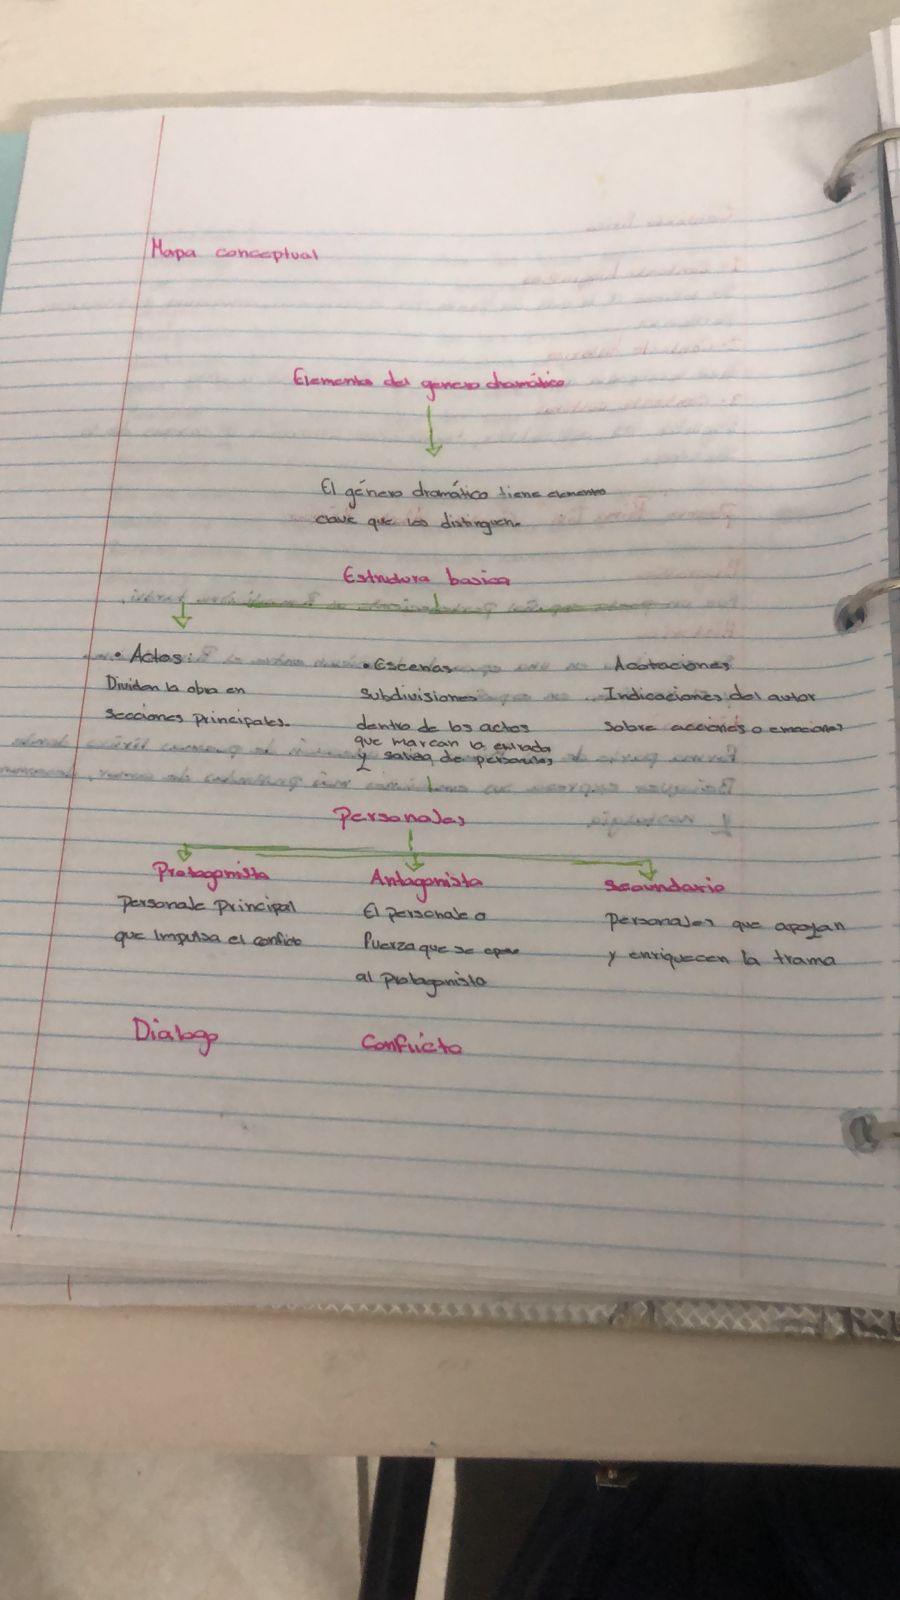 Mapa conceptual
Elementos del genero dramático
El género dramático tiene elementos
clave que los distinguen.
Estructura basica
• Actos:
Dividen la obra en
secciones principales.
• Escenas
subdivisiones
dentro de los actos
que marcan la entrada
y salida de personajes
Acotaciones
Indicaciones del autor
sobre acciones o emociones
Personajes
Protagonista
Personaje Principal
que impulsa el conflicto
Antagonista
El personaje o
fuerza que se opone
al protagonista
Secundario
personajes que apoyan
y enriquecen la trama
Dialogo
Conflicto